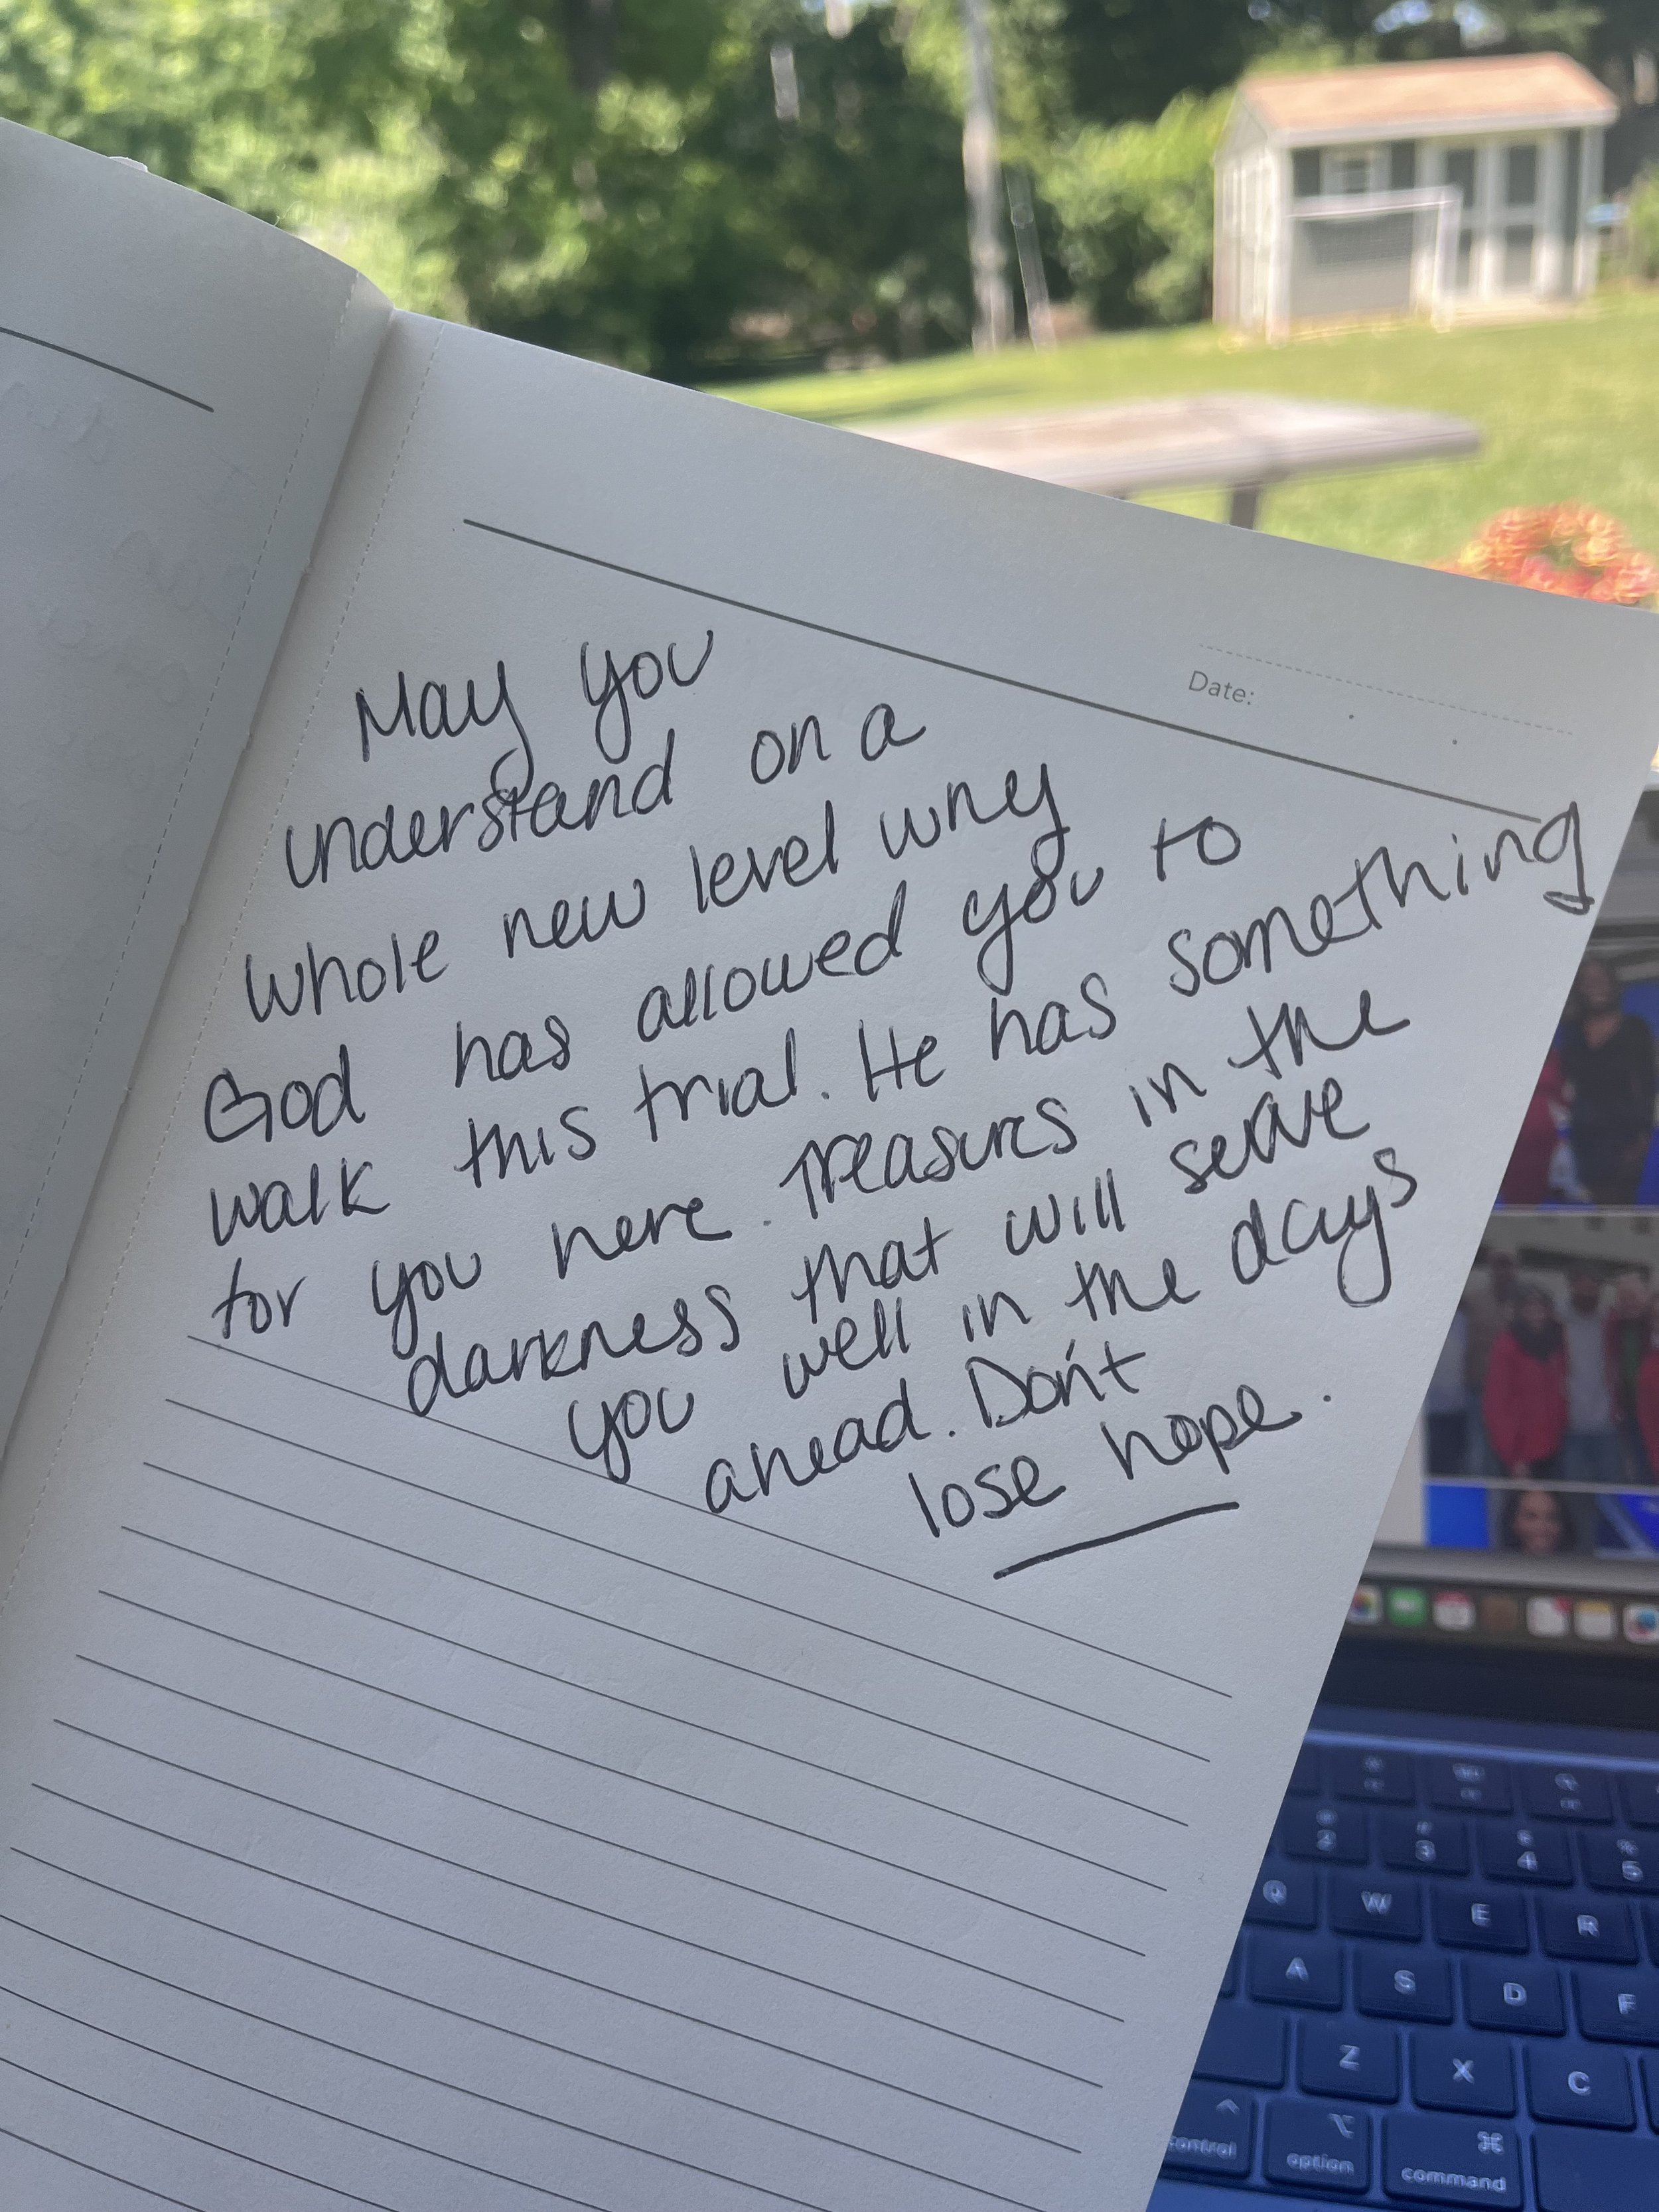 Date:
May you
understand on a
whole new level why
God has allowed you to
walk this trial. He has something
for you here. Treasures in the
darkness that will serve
you well in the days
ahead. Don't
lose hope.
2
3
4
5
Q
W
E
R
A
S
D
F
Z
X
C
control
option
command